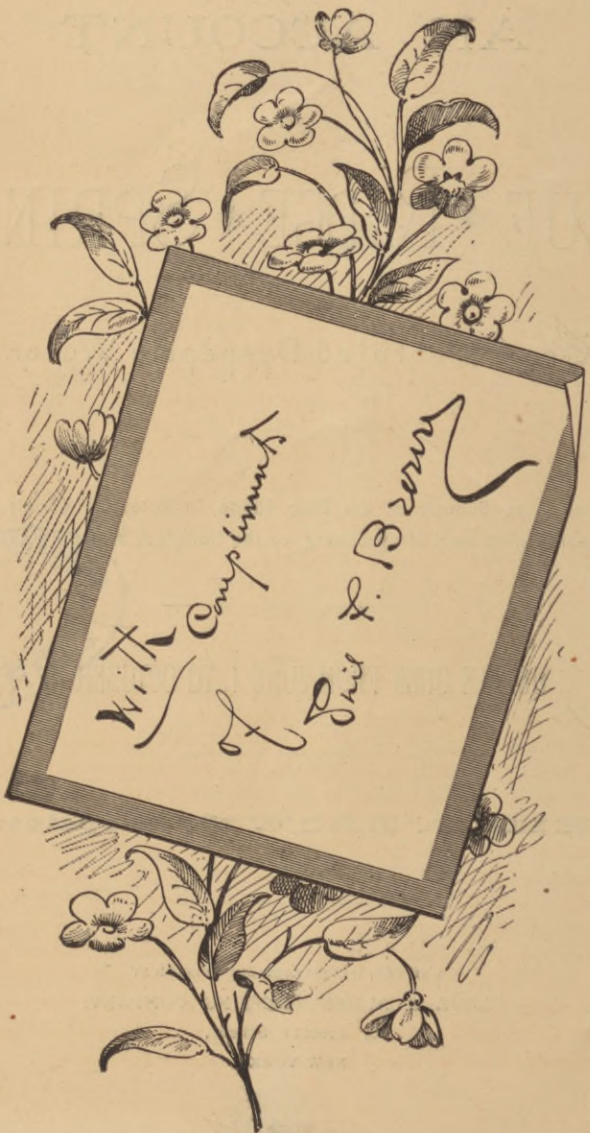 With Compliments
of
Phil F. Brown